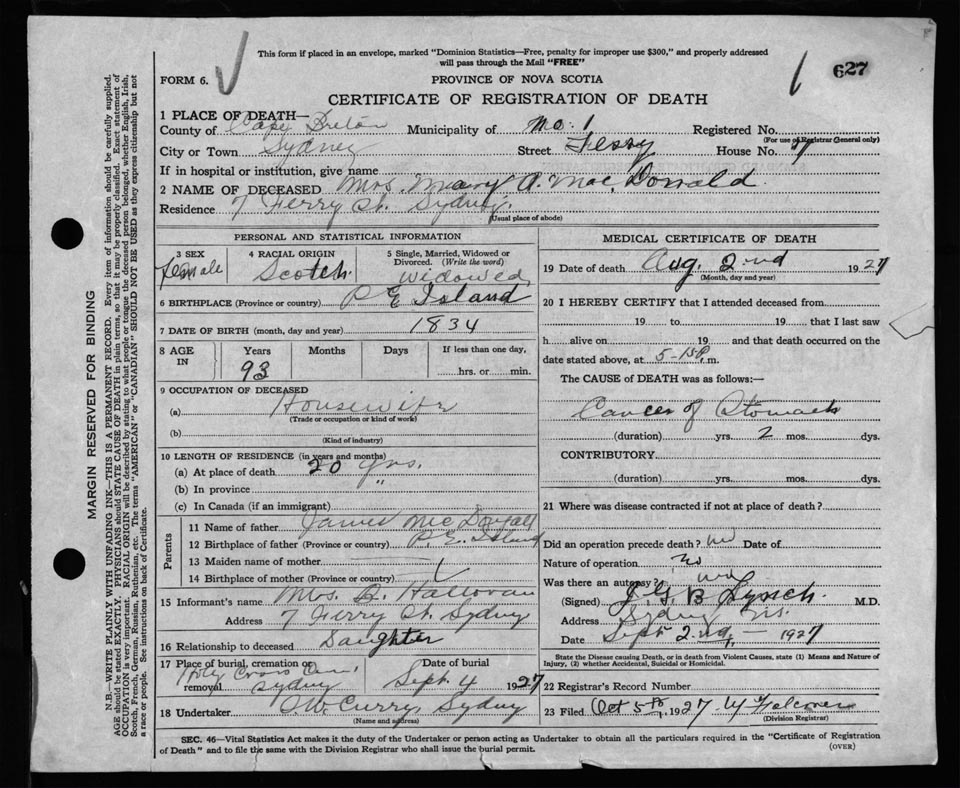 This form if placed in an envelope, marked "Dominion Statistics—Free, penalty for improper use $300," and properly addressed
will pass through the Mail "FREE"
FORM 6.
PROVINCE OF NOVA SCOTIA
627
CERTIFICATE OF REGISTRATION OF DEATH
1 PLACE OF DEATH—
County of Cape Breton Municipality of No. 1 Registered No.
(For use of Registrar General only)
City or Town Sydney Street Ferry House No. 7
If in hospital or institution, give name
2 NAME OF DECEASED Mrs. Mary A. Mac Donald
Residence 7 Ferry St. Sydney.
(Usual place of abode)
PERSONAL AND STATISTICAL INFORMATION
3 SEX female
4 RACIAL ORIGIN Scotch
5 Single, Married, Widowed or
Divorced. (Write the word)
Widowed
6 BIRTHPLACE (Province or country) P E Island
7 DATE OF BIRTH (month, day and year) 1834
8 AGE IN Years 93 Months Days If less than one day, hrs. or min.
9 OCCUPATION OF DECEASED
(a) Housewife
(Trade or occupation or kind of work)
(b)
(Kind of industry)
10 LENGTH OF RESIDENCE (in years and months)
(a) At place of death 20 yrs.
(b) In province "
(c) In Canada (if an immigrant)
Parents
11 Name of father James McDougall
12 Birthplace of father (Province or country) P.E. Island
13 Maiden name of mother
14 Birthplace of mother (Province or country)
15 Informant's name Mrs. Halloran
Address 7 Ferry St. Sydney
16 Relationship to deceased Daughter
17 Place of burial, cremation or
removal Holy Cross Cem. Sydney
Date of burial Sept 4 1927
18 Undertaker W. Curry, Sydney
(Name and address)
MEDICAL CERTIFICATE OF DEATH
19 Date of death Aug. 2nd 1927
(Month, day and year)
20 I HEREBY CERTIFY that I attended deceased from
19 to 19 that I last saw
h alive on 19 and that death occurred on the
date stated above, at 5-15P. m.
The CAUSE OF DEATH was as follows:—
Cancer of Stomach
(duration) yrs. 2 mos. dys.
CONTRIBUTORY
(duration) yrs. mos. dys.
21 Where was disease contracted if not at place of death?
Did an operation precede death? no Date of
Nature of operation No
Was there an autopsy? no
(Signed) J.G.B. Lynch. M.D.
Address Sydney N.S.
Date Sept 2nd, — 1927
State the Disease causing Death, or in death from Violent Causes, state (1) Means and Nature of
Injury, (2) whether Accidental, Suicidal or Homicidal.
22 Registrar's Record Number
23 Filed Oct 5th, 1927 Falconer
(Division Registrar)
SEC. 46—Vital Statistics Act makes it the duty of the Undertaker or person acting as Undertaker to obtain all the particulars required in the "Certificate of Registration
of Death" and to file the same with the Division Registrar who shall issue the burial permit.
(OVER)
MARGIN RESERVED FOR BINDING
N.B.—WRITE PLAINLY WITH UNFADING INK—THIS IS A PERMANENT RECORD. Every item of information should be carefully supplied.
AGE should be stated EXACTLY. PHYSICIANS should STATE CAUSE OF DEATH in plain terms, so that it may be properly classified. Exact statement of
OCCUPATION is very important. RACIAL ORIGIN will be described by stating to what people or tongue the deceased person belonged, whether English, Irish,
Scotch, French, German, Russian, Ruthenian, etc. The terms "AMERICAN" or "CANADIAN" SHOULD NOT BE USED as they express citizenship but not
a race or people. See instructions on back of Certificate.